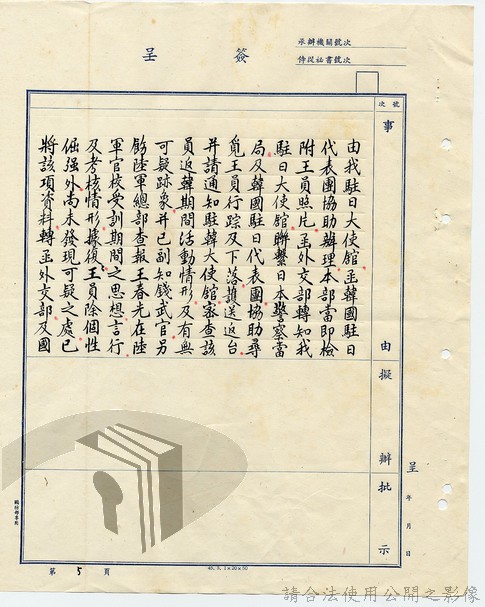 承辦機關號次
侍從祕書號次
簽呈
號次
事由擬辦批示
由我駐日大使館並韓國駐日
代表團協助辦理本部當即檢
附王員照片函外交部轉知我
駐日大使館聯繫日本警察當
局及韓國駐日代表團協助尋
覓王員行踪及下落護送返台
并請通知駐韓大使館密查該
員返韓期間活動情形及有無
可疑跡象并已副知錢武官另
飭陸軍總部查報王春光在陸
軍官校受訓期間之思想言行
及考核情形據復王員除個性
倔强外尚未發現可疑之處已
將該項資料轉函外交部及國
呈 年 月 日
第 5 頁
46. 6. 1×20×50
請合法使用公開之影像